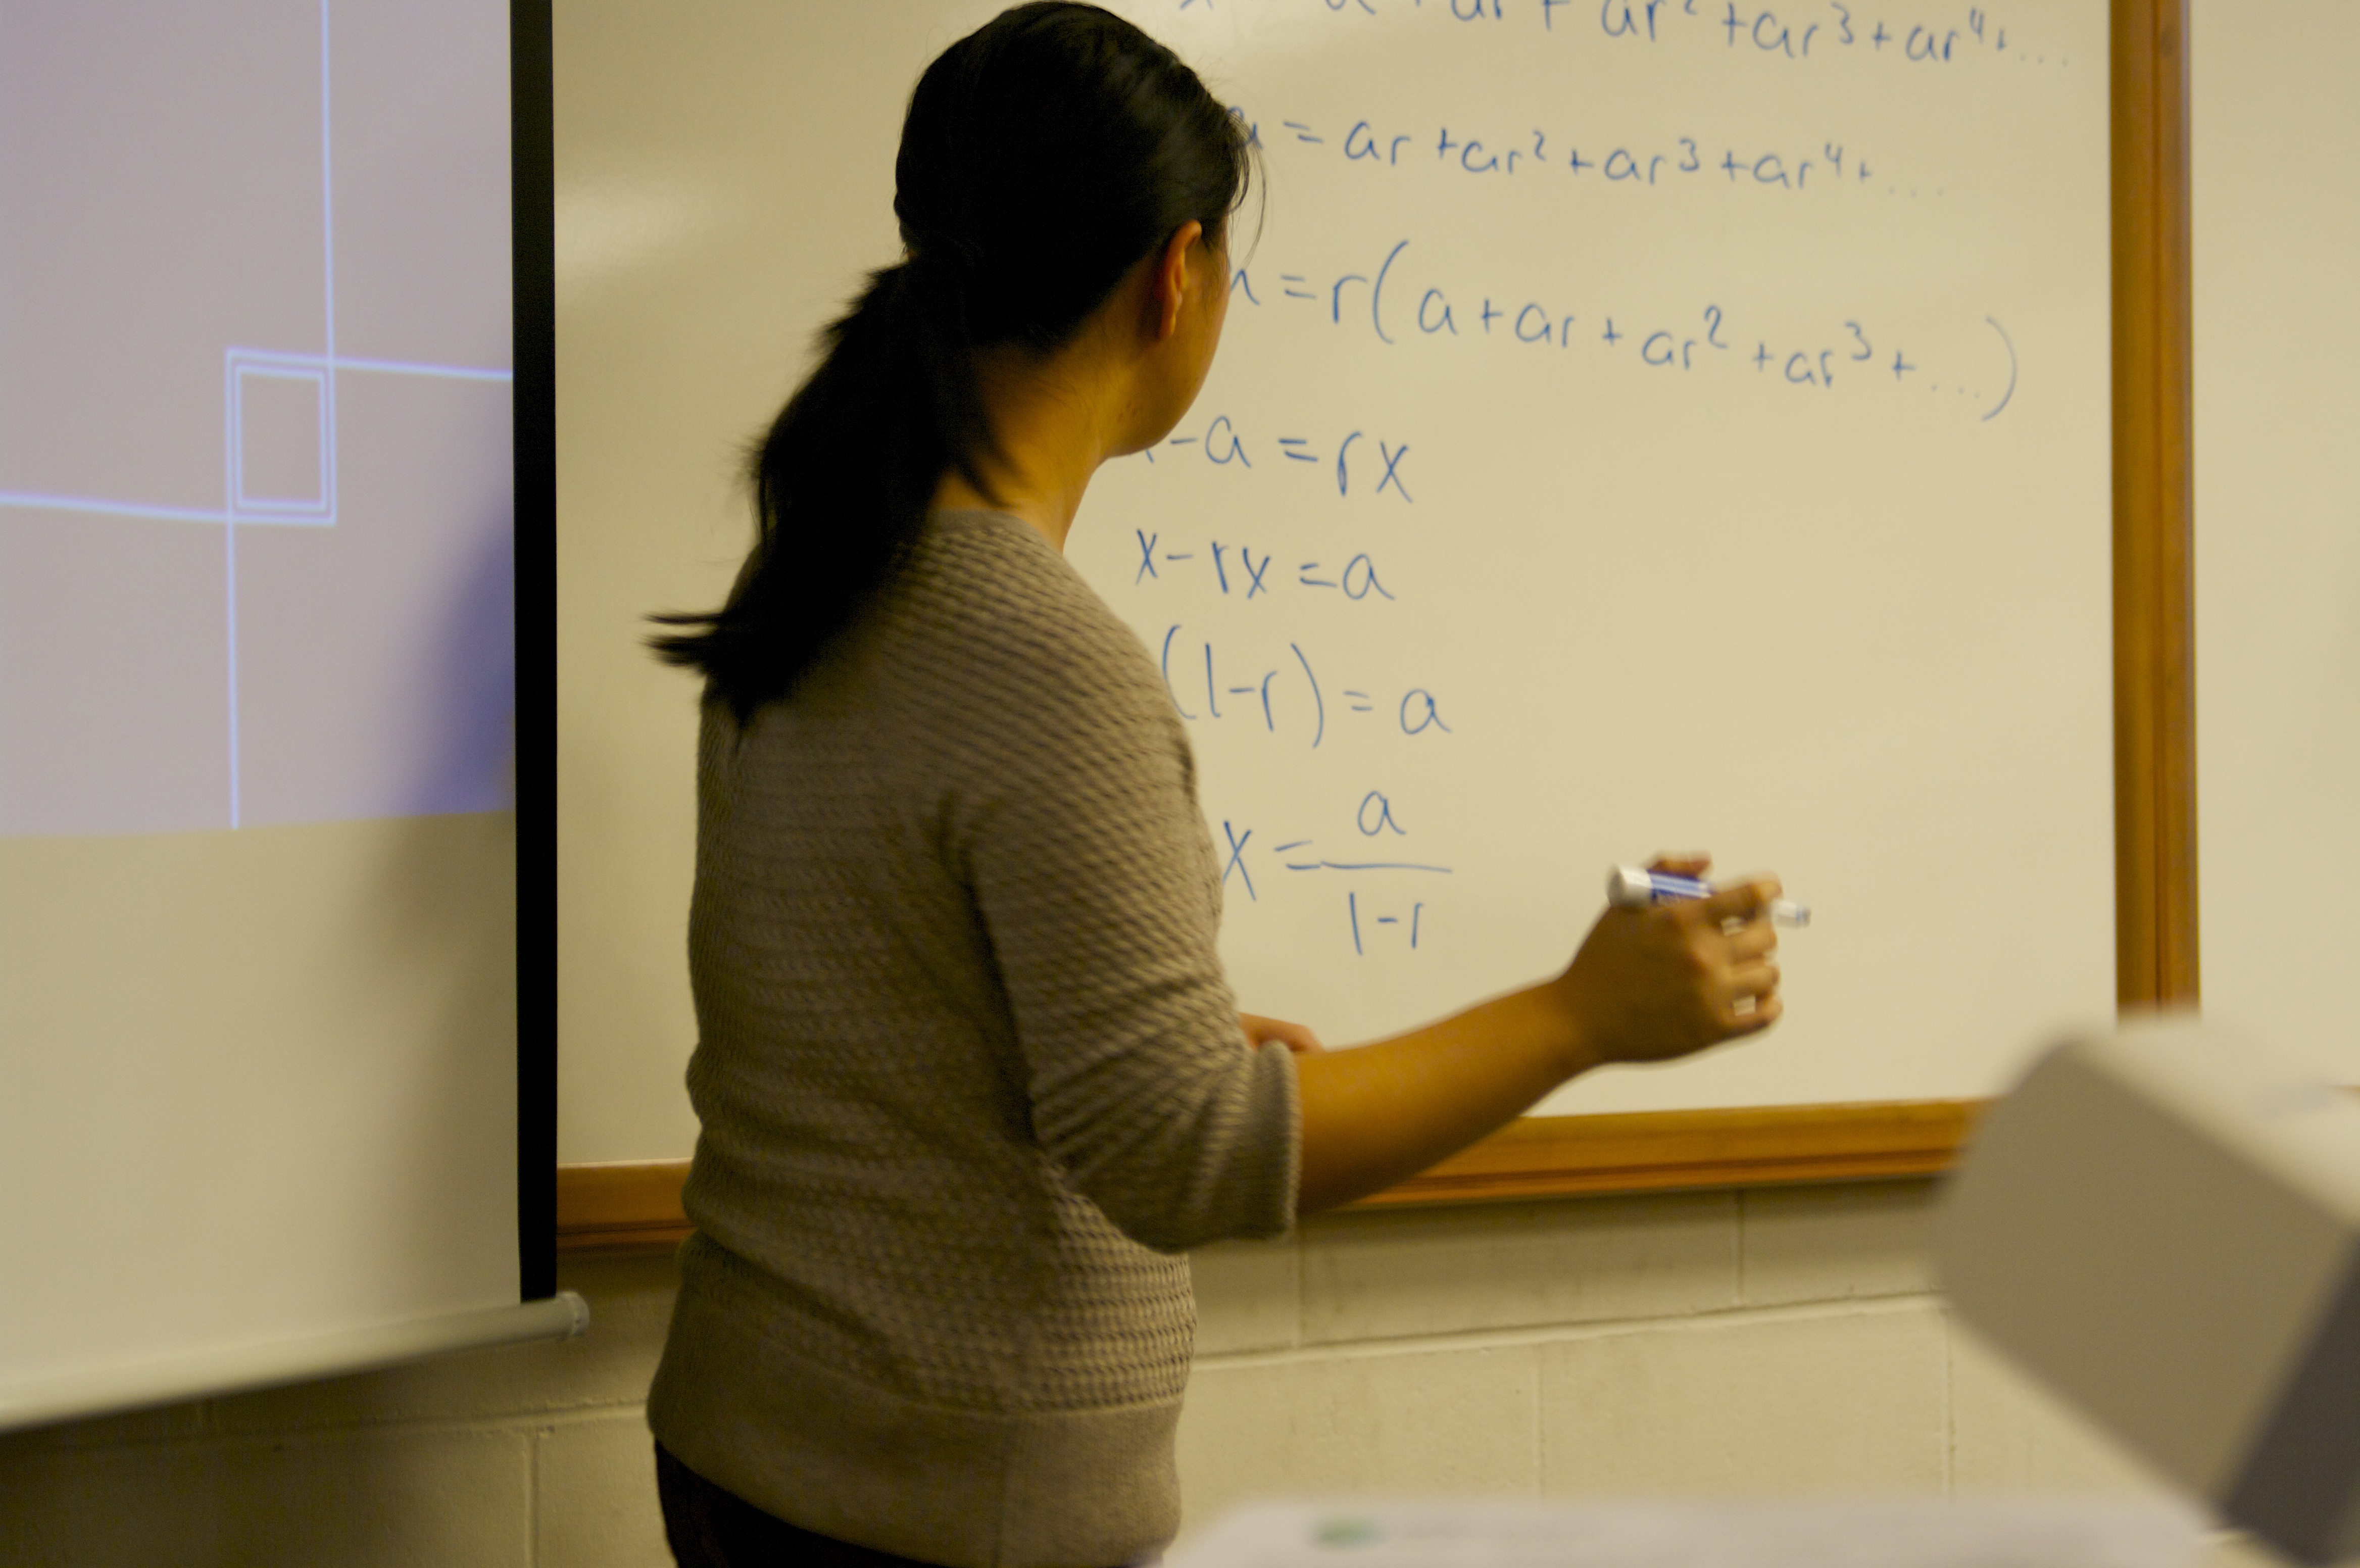 + ar + ar² + ar³ + ar⁴ + ...
a = ar + ar² + ar³ + ar⁴ + ...
= r(a + ar + ar² + ar³ + ...)
- a = rx
x - rx = a
(1-r) = a
x = a
1-r